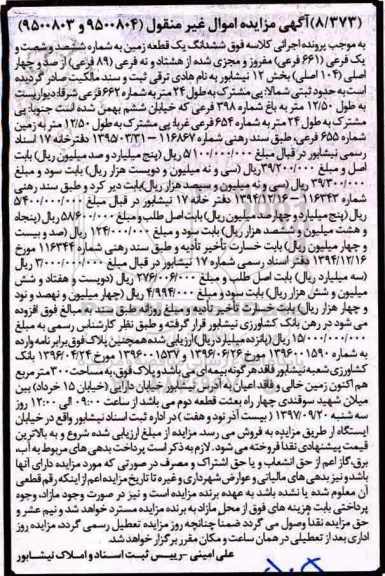 (۸/۳۷۳)آگهی مزایده اموال غیر منقول (۹۵۰۰۸۰۴ و ۹۵۰۰۸۰۳)
به موجب پرونده اجرائی کلاسه فوق ششدانگ یک قطعه زمین به شماره ششصد و شصت و
یک فرعی (۶۶۱ فرعی) مفروز و مجزی شده از هشتاد و نه فرعی (۸۹ فرعی) از صد و چهار
اصلی (۱۰۴ اصلی) بخش ۱۲ نیشابور به نام هادی ترقی ثبت و سند مالکیت صادر گردیده
است به حدود ثبتی شمالا: پی مشترک به طول ۲۴ متر به شماره ۶۶۲ فرعی شرقا: دیواریست
به طول ۱۲/۵۰ متر به باغ شماره ۳۹۸ فرعی که خیابان ششم بهمن شده است جنوبا: پی
مشترک به طول ۲۴ متر به شماره ۶۵۴ فرعی غربا: پی مشترک به طول ۱۲/۵۰ متر به زمین
شماره ۶۵۵ فرعی، طبق سند رهنی شماره ۱۱۶۸۶۷ – ۱۳۹۵/۰۳/۳۱ دفترخانه ۱۷ اسناد
رسمی نیشابور در قبال مبلغ ۵/۱۰۰/۰۰۰/۰۰۰ ریال (پنج میلیارد و صد میلیون ریال) بابت
اصل و مبلغ ۳۹/۲۰۰/۰۰۰ ریال (سی و نه میلیون و دویست هزار ریال) بابت سود و مبلغ
۳۹/۳۰۰/۰۰۰ ریال (سی و نه میلیون و سیصد هزار ریال) بابت دیر کرد و طبق سند رهنی
شماره ۱۱۶۳۴۳ – ۱۳۹۴/۱۲/۱۶ دفتر خانه ۱۷ نیشابور در قبال مبلغ ۵/۴۰۰/۰۰۰/۰۰۰
ریال (پنج میلیارد و چهارصد میلیون ریال) بابت اصل طلب و مبلغ ۵۸/۶۰۰/۰۰۰ ریال (پنجاه
و هشت میلیون و ششصد هزار ریال) بابت سود و مبلغ ۱۲۴/۰۰۰/۰۰۰ ریال (صد و بیست
و چهار میلیون ریال) بابت خسارت تأخیر تأدیه و طبق سند رهنی شماره ۱۱۶۳۴۴ مورخ
۱۳۹۴/۱۲/۱۶ دفتر اسناد رسمی شماره ۱۷ نیشابور در قبال مبلغ ۳/۰۰۰/۰۰۰/۰۰۰ ریال
(سه میلیارد ریال) بابت اصل طلب و مبلغ ۲۷۶/۰۰۶/۰۰۰ ریال (دویست و هفتاد و شش
میلیون و شش هزار ریال) بابت سود و مبلغ ۴/۹۹۴/۰۰۰ ریال (چهار میلیون و نهصد و نود
و چهار هزار ریال) بابت خسارت تأخیر تأدیه و مبلغ روزانه طبق سند به مبالغ فوق افزوده
می شود در رهن بانک کشاورزی نیشابور قرار گرفته و طبق نظر کارشناس رسمی به مبلغ
۱۵/۰۰۰/۰۰۰/۰۰۰ ریال (پانزده میلیارد ریال) ارزیابی شده همچنین پلاک فوق برابر نامه وارده
به شماره ۱۵۹۰۰ ۱۳۹۶ مورخ ۱۳۹۶/۰۶/۲۶ و ۱۵۳۷ ۱۳۹۶۰۰ مورخ ۱۳۹۶/۰۴/۲۴ بانک
کشاورزی شعبه نیشابور فاقد هرگونه بیمه ای می باشد و پلاک فوق به مساحت ۳۰۰ متر مربع
هم اکنون زمین خالی و فاقد اعیان به آدرس نیشابور خیابان دارایی (خیابان ۱۵ خرداد) بین
میلان شهید سوقندی چهار راه بعثت قطعه دوم می باشد از ساعت ۰۹:۰۰ الی ۱۲:۰۰ روز
سه شنبه ۱۳۹۷/۰۹/۲۰ (بیست آذر نود و هفت) در اداره ثبت اسناد نیشابور واقع در خیابان
ایستگاه از طریق مزایده به فروش می رسد. مزایده از مبلغ ارزیابی شده شروع و به بالاترین
قیمت پیشنهادی نقدا فروخته می شود. لازم به ذکر است پرداخت بدهی های مربوط به آب،
برق، گاز اعم از حق انشعاب و یا حق اشتراک و مصرف در صورتی که مورد مزایده دارای آنها
باشد و نیز بدهی های مالیاتی و عوارض شهرداری و غیره تا تاریخ مزایده اعم از اینکه رقم قطعی
آن معلوم شده یا نشده باشد به عهده برنده مزایده است و نیز در صورت وجود مازاد، وجوه
پرداختی بابت هزینه های فوق از محل مازاد به برنده مزایده مسترد خواهد شد و نیم عشر و
حق مزایده نقدا وصول می گردد ضمنا چنانچه روز مزایده تعطیل رسمی گردد، مزایده روز
اداری بعد از تعطیلی در همان ساعت و مکان مقرر برگزار خواهد شد.
علی امینی – رییس ثبت اسناد و املاک نیشابور